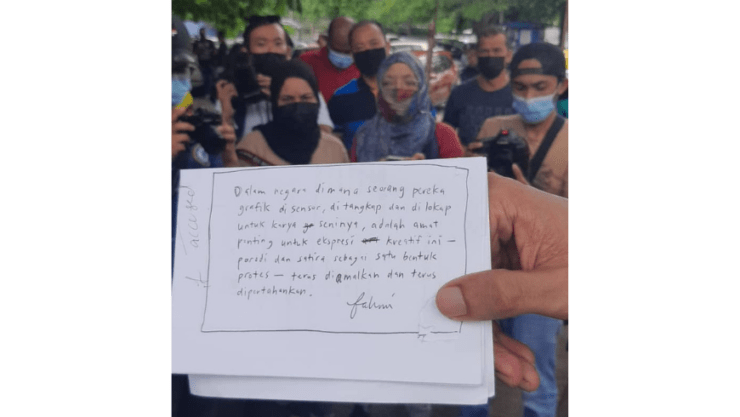 Dalam negara dimana seorang pereka
grafik disensor, ditangkap dan dilokap
untuk karya seninya, adalah amat
penting untuk ekspresi kreatif ini –
parodi dan satira sebagai satu bentuk
protes – terus diamalkan dan terus
dipertahankan.
fahmi
accused